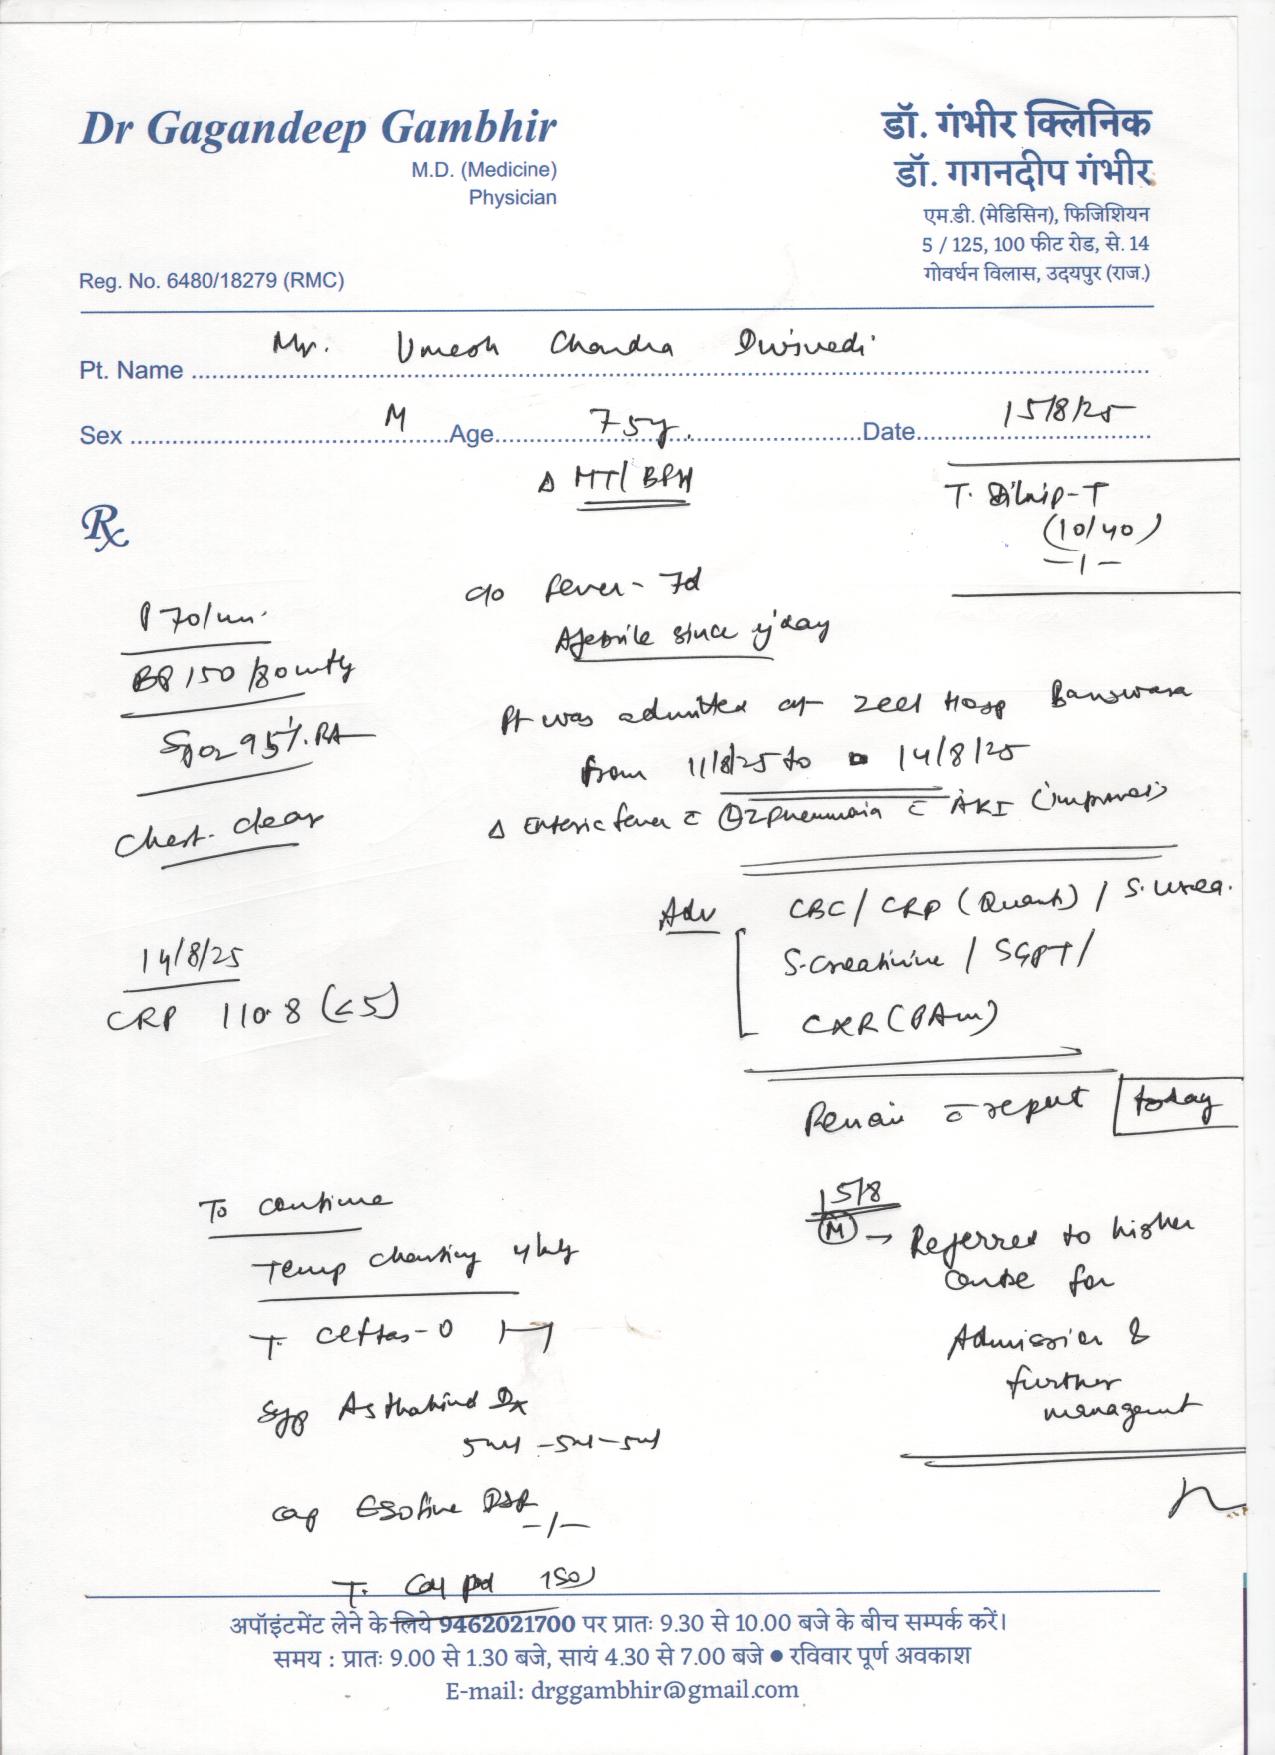 Dr Gagandeep Gambhir
M.D. (Medicine)
Physician
Reg. No. 6480/18279 (RMC)
डॉ. गंभीर क्लिनिक
डॉ. गगनदीप गंभीर
एम.डी. (मेडिसिन), फिजिशियन
5 / 125, 100 फीट रोड, से. 14
गोवर्धन विलास, उदयपुर (राज.)
Pt. Name Mr. Umesh Chandra Dwivedi
Sex M Age 75y. Date 15/8/25
Δ HT/ BPH
T. -T
(10/40)
-1-
Rx
P 70/mn.
BP 150/80mmHg
SpO2 95% RA
Chest. clear
c/o fever - 7d
Afebrile since y'day
Pt was admitted at Zeel Hosp Banswara
from 11/8/25 to 14/8/25
Δ Enteric fever c̄ Pneumonia c̄ AKI (improved)
Adv CBC/ CRP (Quanti) / S. urea.
S. creatinine / SGPT/
CXR (PA)
14/8/25
CRP 110.8 (<5)
c̄ report today
15/8
(M) → Referred to higher
centre for
Admission &
further
managemnt
To continue
Temp charting 4hly
T. Ceftas-O 1-1
Syp Asthakind Dx
5ml -5ml -5ml
cap DSR
-1-
T. Calpol
अपॉइंटमेंट लेने के लिये 9462021700 पर प्रातः 9.30 से 10.00 बजे के बीच सम्पर्क करें।
समय : प्रातः 9.00 से 1.30 बजे, सायं 4.30 से 7.00 बजे ● रविवार पूर्ण अवकाश
E-mail: drggambhir@gmail.com